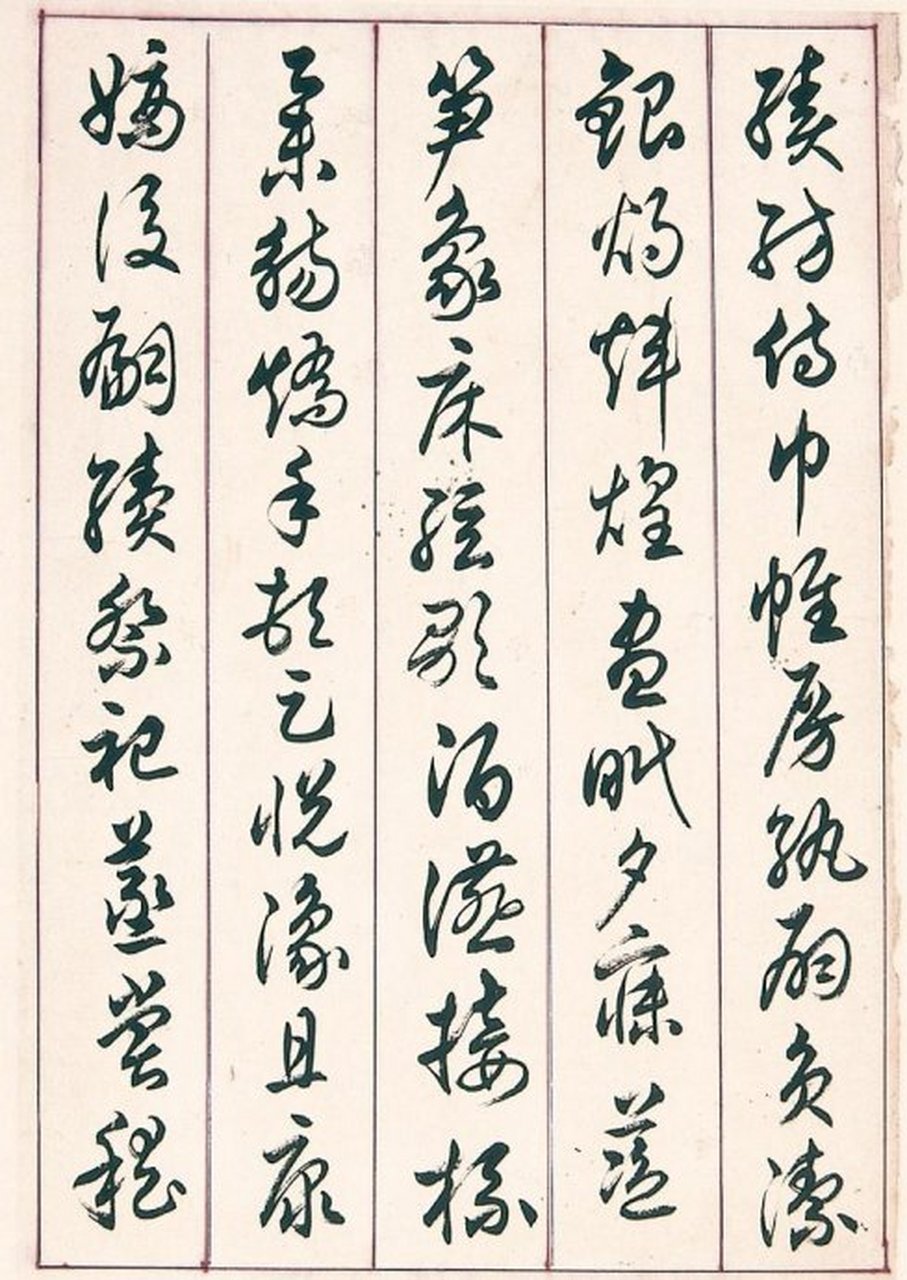 績紡侍巾帷房紈扇員潔
銀燭煒煌晝眠夕寐藍
笋象床絃歌酒讌接杯
舉觴矯手頓足悅豫且康
嫡後嗣續祭祀蒸嘗稽